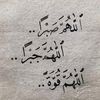 اللَّهُمَّ صَبْرًا..
اللَّهُمَّ جَبْرًا..
اللَّهُمَّ قُوَّةً..